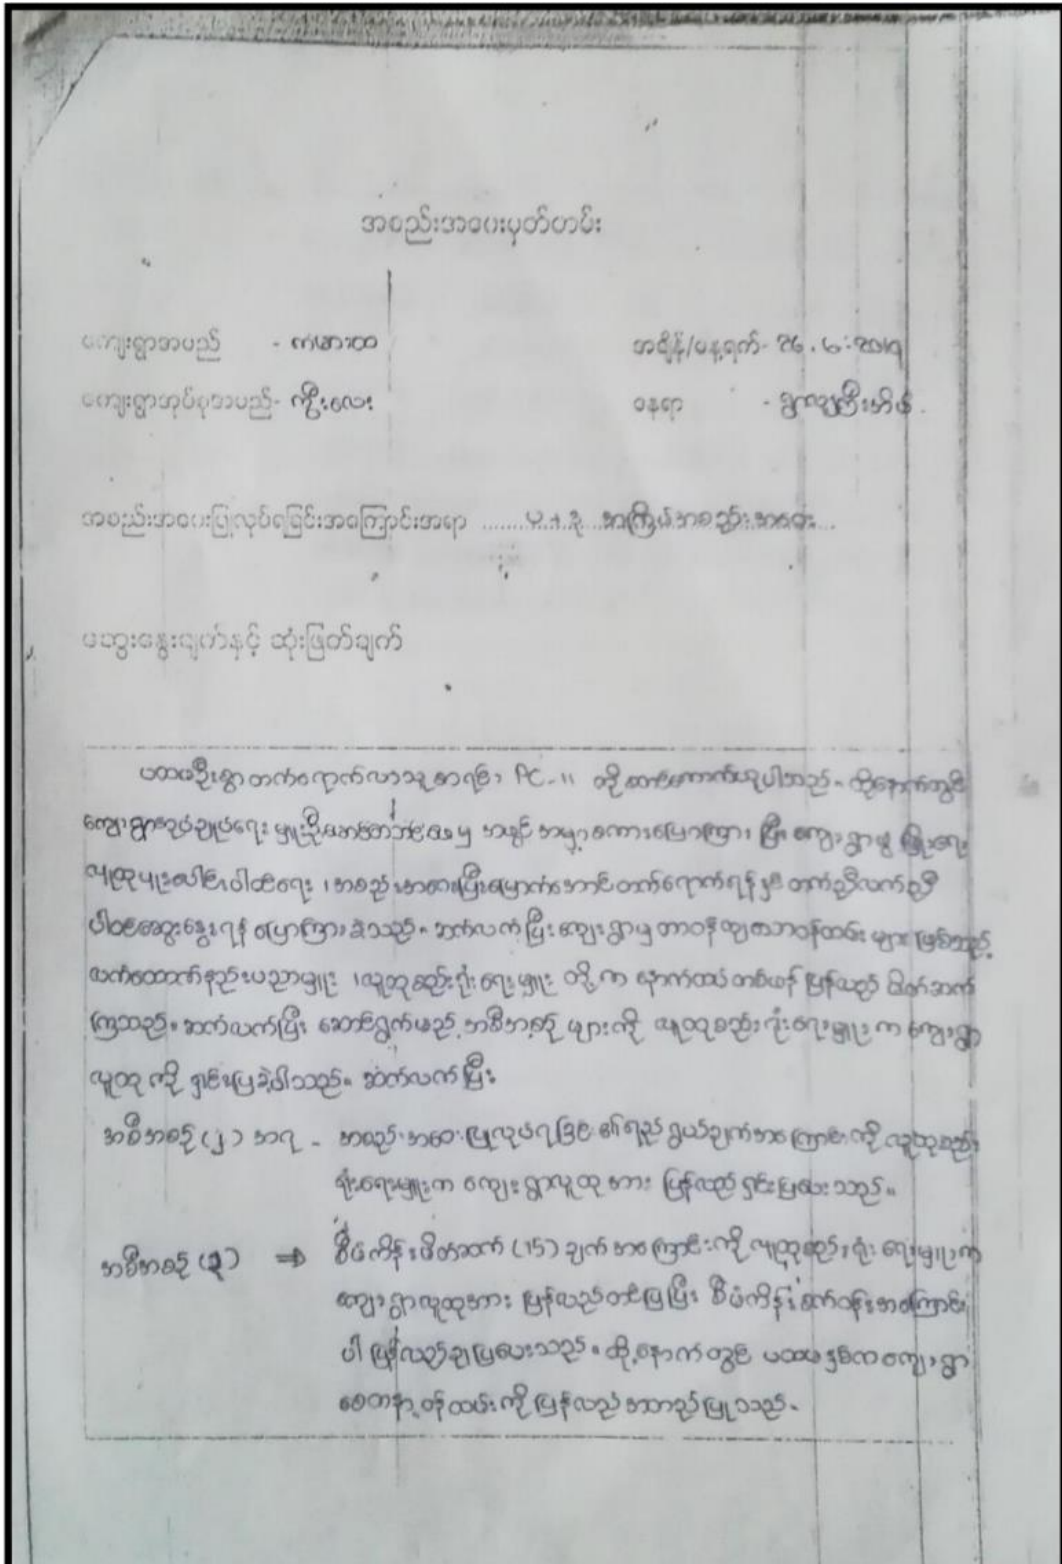 အစည်းအဝေးမှတ်တမ်း
ကျေးရွာအမည် - ကမားထ အချိန်/နေ့ရက်- 26.6.2019
ကျေးရွာအုပ်စုအမည်- ကွီးလေး နေရာ - ရွာလူကြီးအိမ်
အစည်းအဝေးပြုလုပ်ရခြင်းအကြောင်းအရာ ........ အကြိုအစည်းအဝေး...
ဆွေးနွေးချက်နှင့် ဆုံးဖြတ်ချက်
ပထမဦးစွာ တက်ရောက်လာသူ စာရင်း PC-11 တို့ ကောက်ယူပါသည်။ ထို့နောက်တွင်
ကျေးရွာအုပ်ချုပ်ရေးမှူး မှ အဖွင့် အမှာစကားပြောကြား ပြီး ကျေးရွာဖွံ့ဖြိုးရေး
လူထုပူးပေါင်းပါဝင်ရေး၊ အစည်းအဝေးပြီးမြောက်အောင် တက်ရောက်ရန်နှင့် တက်ညီလက်ညီ
ပါဝင်ဆွေးနွေးရန် ပြောကြားခဲ့သည်။ ဆက်လက်ပြီး ကျေးရွာမှ တာဝန်ကျ ဝန်ထမ်း များ ဖြစ်သည့်
လက်ထောက်နည်းပညာမှူး၊ လူထုစည်းရုံးရေးမှူး တို့က နောက်ထပ် တစ်ဖန် ပြန်လည် မိတ်ဆက်
ကြသည်။ ဆက်လက်ပြီး ဆောင်ရွက်မည့် အစီအစဉ် များကို လူထုစည်းရုံးရေးမှူး က ကျေးရွာ
လူထု ကို ရှင်းပြခဲ့ပါသည်။ ဆက်လက်ပြီး
အစီအစဉ် (၂) အရ - အစည်းအဝေးပြုလုပ်ရခြင်း၏ ရည်ရွယ်ချက်အကြောင်းကို လူထုစည်း
ရုံးရေးမှူးက ကျေးရွာလူထု အား ပြန်လည် ရှင်းပြပေးသည်။
အစီအစဉ် (၃) ⇒ စီမံကိန်းမိတ်ဆက် (15) ချက် အကြောင်းကို လူထုစည်းရုံးရေးမှူးက
ကျေးရွာလူထုအား ပြန်လည်တင်ပြပြီး စီမံကိန်းစက်ဝန်းအကြောင်း
ပါ ပြန်လည်ချပြပေးသည်။ ထို့နောက်တွင် ပထမနှစ်က ကျေးရွာ
စေတနာ့ဝန်ထမ်းကို ပြန်လည် အတည်ပြုသည်။